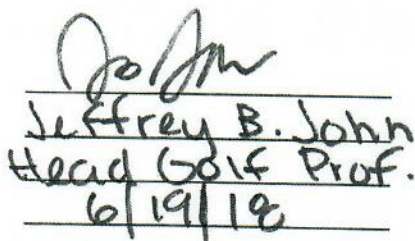 Jeffrey B. John
Head Golf Prof.
6/19/18